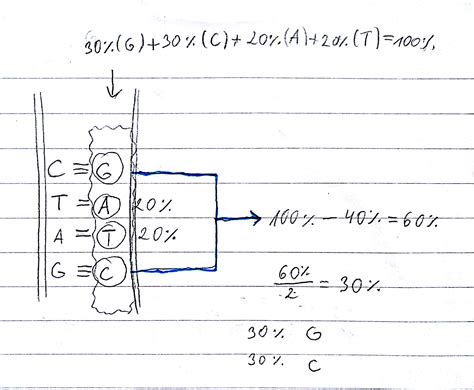 30%(G)+30%(C)+20%(A)+20%(T)=100%
C≡G
T=A 20%
A=T 20%
G≡C
100% - 40% = 60%
60%/2 = 30%
30% G
30% C